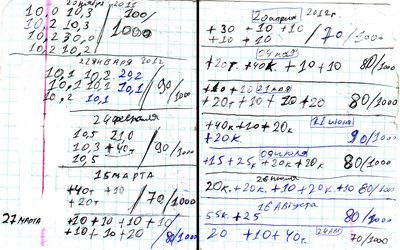 20 ноября 2011
10,0 10,3 / 100/
10,2 10,3 / 1000
10,2 30,0
10,2 10,2
22 января 2012
10,1 10,2 29,2
10,1 10,1 10,1 / 90/
10,2 10,1 / 1000
24 февраля
10,5 21,0
10,3 +40т / 90/
10,5 / 1000
15 марта
+40т +10 / 70/
+20т / 1000
27 марта +20 +10 +10 +10
+10 +10 +20 / 80/1000
20 апреля 2012г
+30 +10 +10
+10 +10 / 70/1000
04 мая
+20т +40к +10 +10 80/1000
+10 +10 21 мая
+20т +10 +10 +20 80/1000
+40к +10 +20к 11 июня
+20к 90/1000
+15 +25к +20к +20к 80/1000
20к +20к +10 +20к +10 80/1000
16 Августа
55к +25 80/1000
20 +10 +40т 80/1000